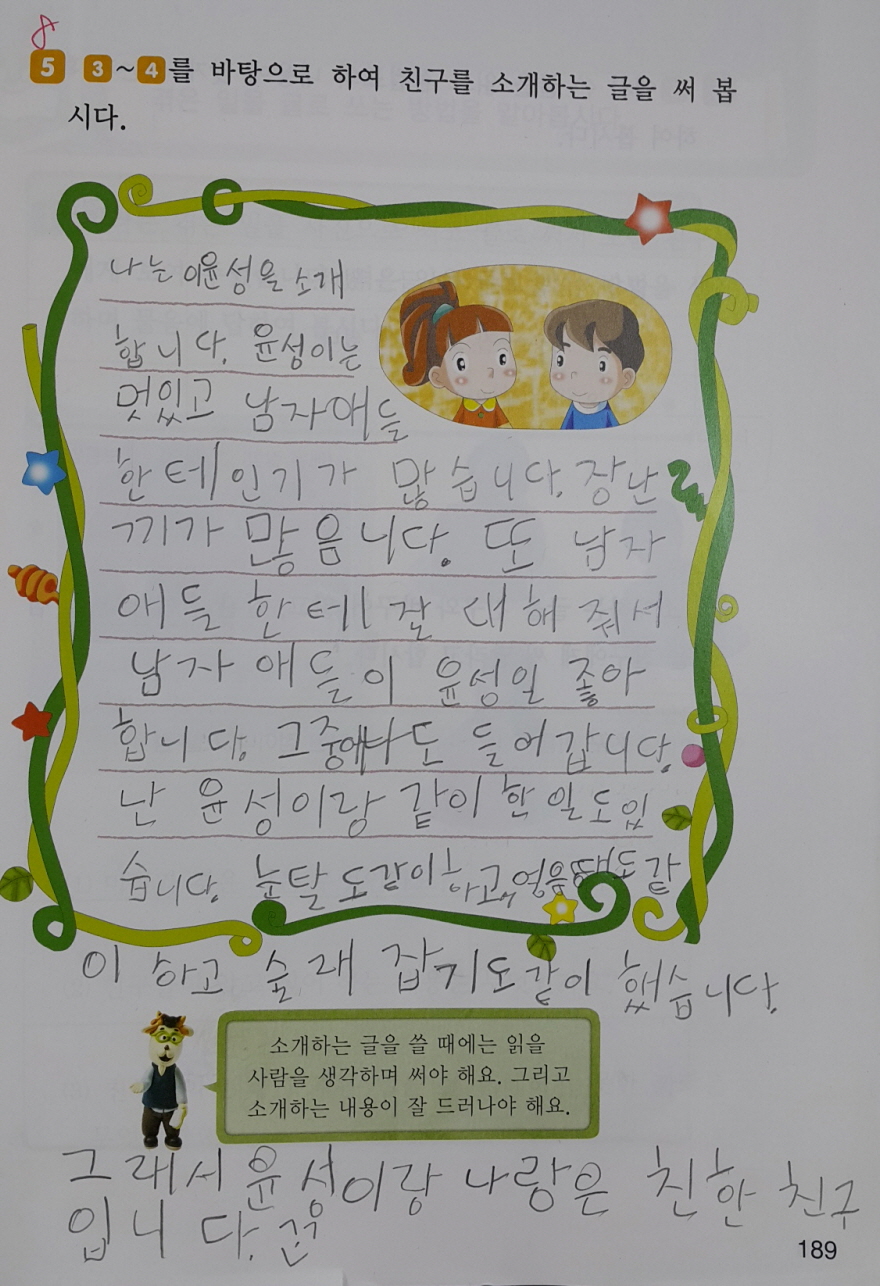 5 3~4를 바탕으로 하여 친구를 소개하는 글을 써 봅
시다.
나는 이윤성을 소개
합니다. 윤성이는
멋있고 남자애들
한테 인기가 많습니다. 장난
끼가 많음니다. 또 남자
애들 한테 잘 대해 줘서
남자 애들이 윤성일 좋아
합니다. 그중에나도 들어갑니다.
난 윤성이랑 같이 한 일도 있
습니다. 눈탈도같이하고, 얼음땡도 같
이 하고 술래 잡기도같이 했습니다.
소개하는 글을 쓸 때에는 읽을
사람을 생각하며 써야 해요. 그리고
소개하는 내용이 잘 드러나야 해요.
그래서 윤성이랑 나랑은 친한 친구
입니다. 끝
189